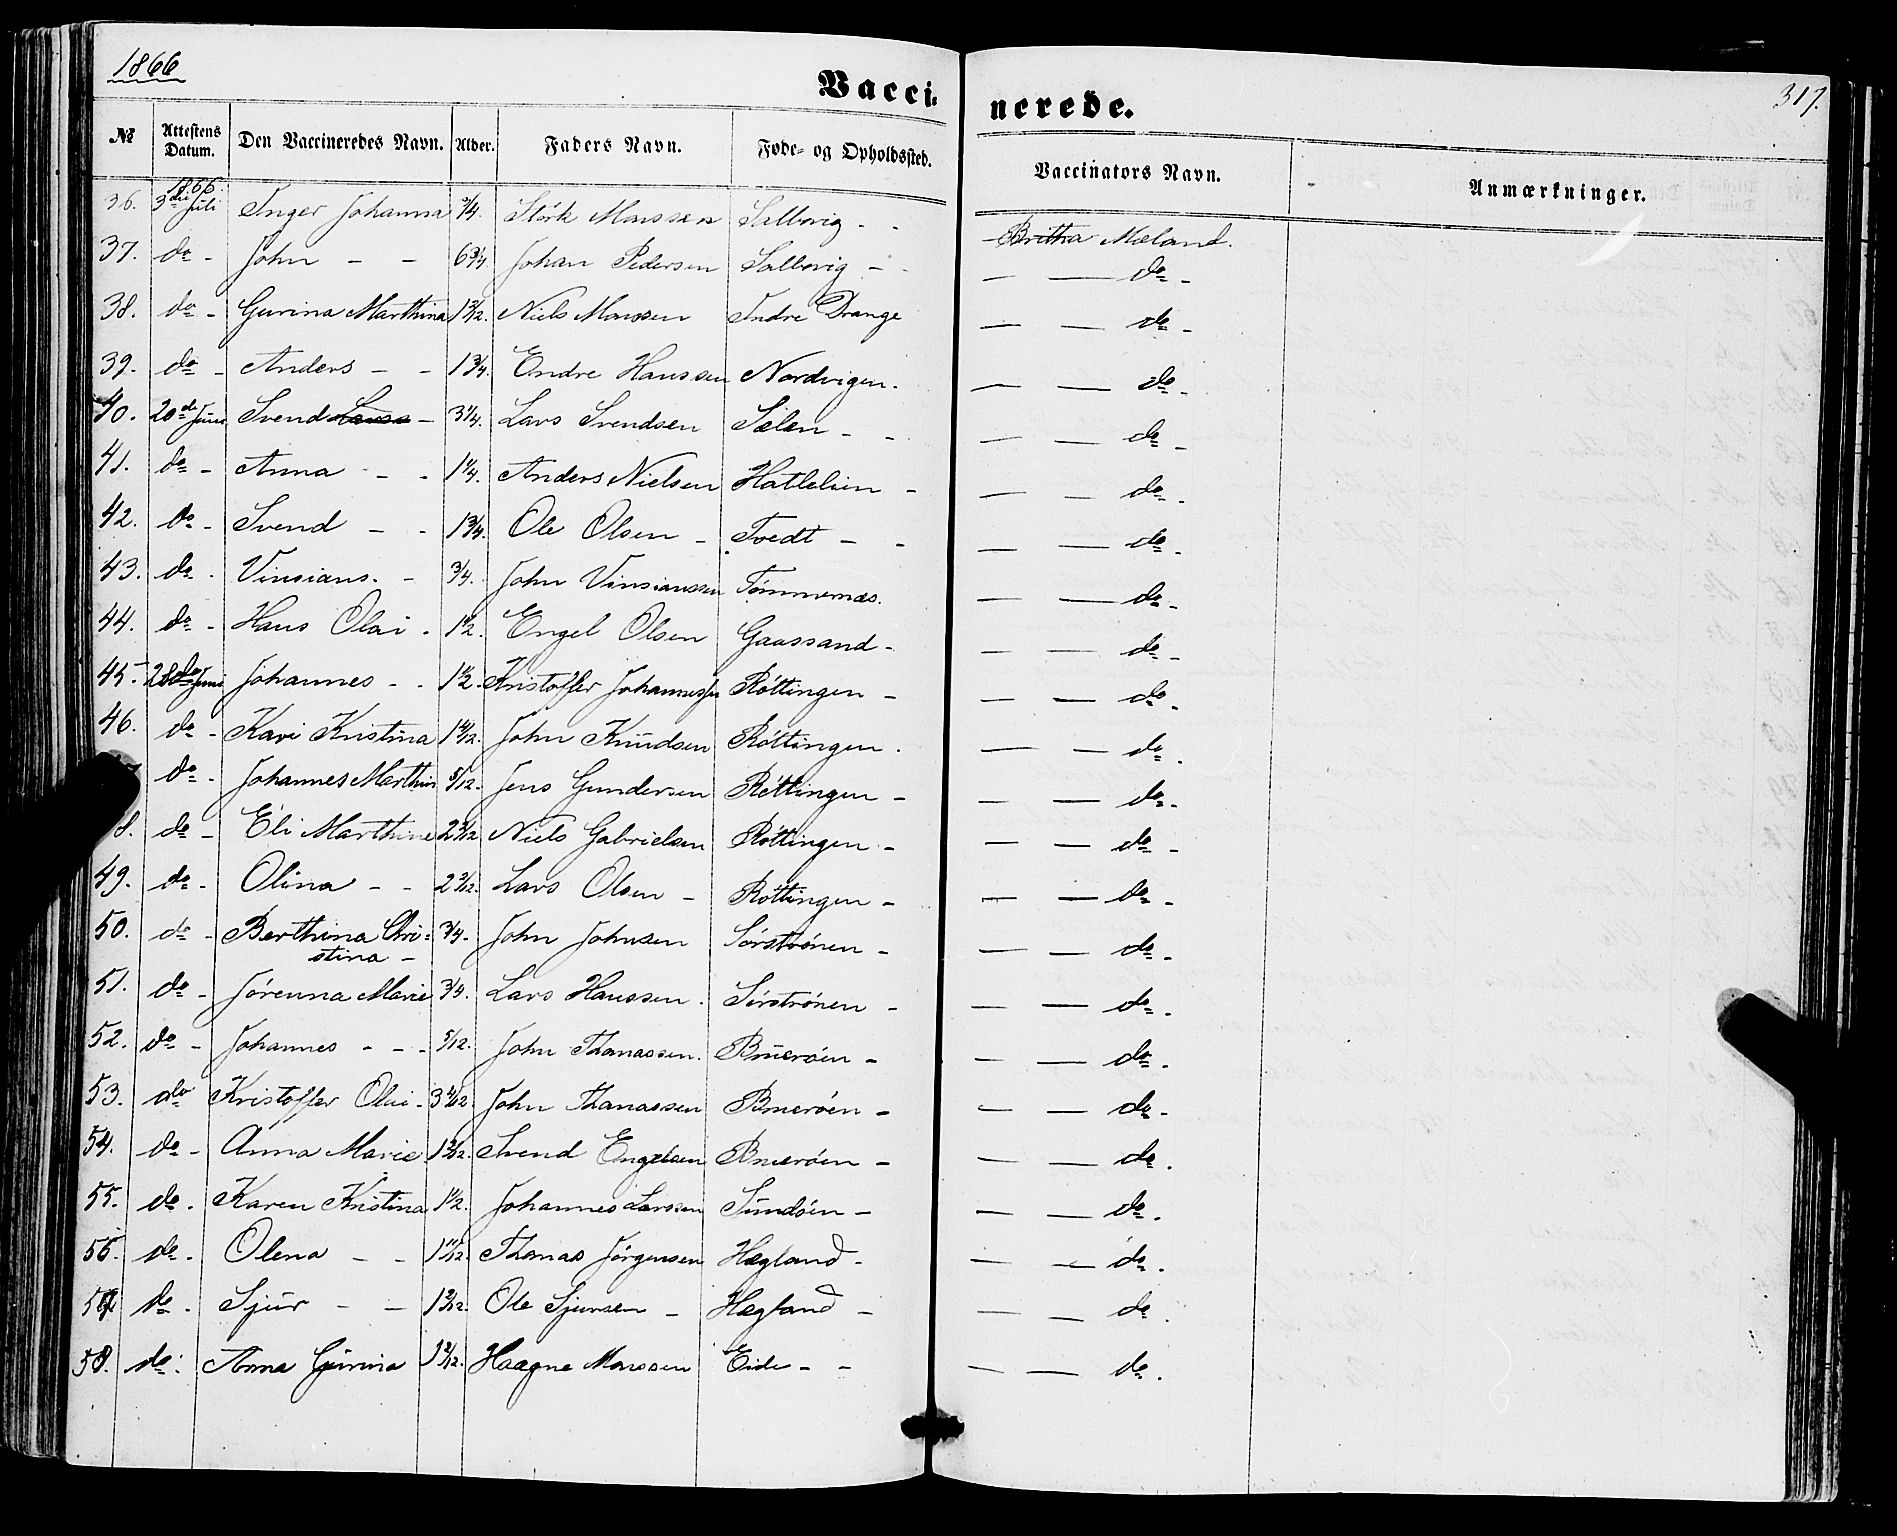 1866
Vacci- nerede.
317.
№ Attestens Datum. Den Vaccineredes Navn. Alder. Faders Navn. Føde- og Opholdssted. Vaccinators Navn. Anmærkninger.
36. 1866 3die Juli Inger Johanna 3/4. Størk Monssen Salbovig - - Britha Mæland.
37. do - John - - 6 3/4 Johan Pedersen Salbovig - - — — do -
38. do - Gurina Marthina 1 3/12. Niels Monssen Indre Drange — — do -
39. do - Anders - - 1 3/4. Endre Hanssen Nordvigen. — — do -
40. 20de Juni Svend - 3 1/4. Lars Svendsen Sælen - - — — do -
41. do - Anna - - 1 1/4. Anders Nielsen Hatlelien - — — do -
42. do - Svend - - 1 3/4. Ole Olsen - Tvedt - - — — do -
43. do - Vinsians. - 3/4. John Vinsianssen Tømmernæs. — — do -
44. do - Hans Olai - 1 1/2. Engel Olsen Gaassand - — — do -
45. 28de Juni Johannes - - 1 1/2. Kristoffer Johannessen Røttingen - — — do -
46. do - Kari Kristina John Knudsen Røttingen. — — do -
do - Johannes Marthin 5/12. Jens Gundersen Røttingen - — — do -
8. do - Eli Marthine 2 3/12 Niels Gabrielsen Røttingen - — — do -
49. do - Olina - - 2 3/12. Lars Olsen - Røttingen - — — do -
50. do - Berthina Chri- 3/4. John Johnsen Sørstrønen - — — do -
stina -
51. do - Jørenna Marie 3/4. Lars Hanssen. Sørstrønen - — — do -
52. do - Johannes - - - 5/12. John Thomassen. Bruerøen - — — do -
53. do Kristoffer Olai - John Thomassen Bruerøen - — — do -
54. do - Anna Marie Svend Engelsen Bruerøen - — — do.
55. do. Karen Kristina 1 1/2. Johannes Larssen Sundøen - — — do.
56. do - Olena - - 1 11/12. Thomas Jörgensen Hægland - — — do.
57 do - Sjur - - Ole Sjursen - Hægland - — — do.
58. do. Anna Gurina Haagne Monssen Eide - - — — do.